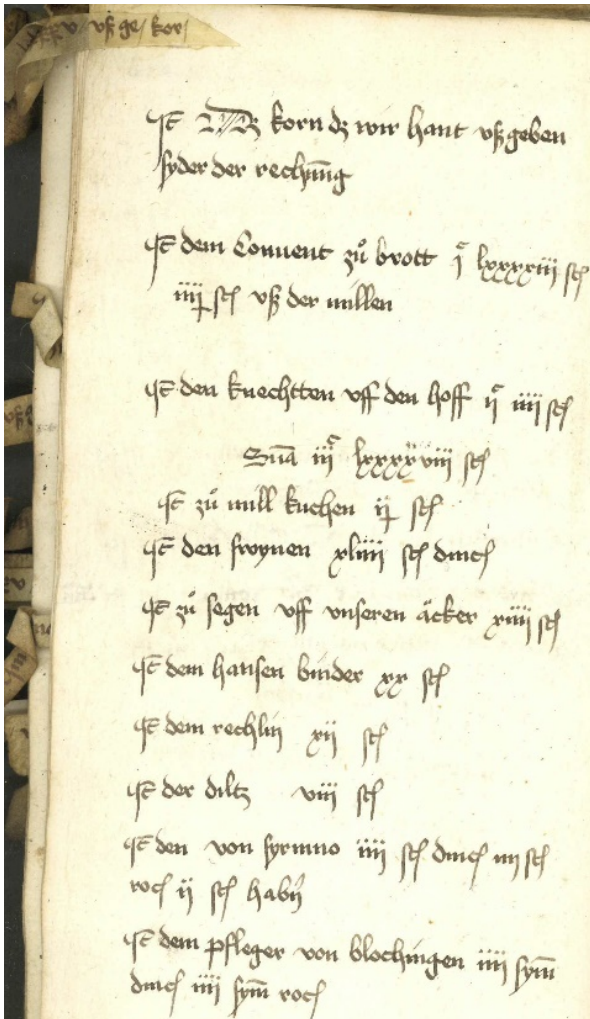 vß ge kor
It Dz korn dz wir hant vßgeben
syder der rechnūg
It dem Conuent zuͦ brott lxxxxiii sch
iiii sch vß der müllen
It den knechtten vff den hoff iiii sch
Sūa lxxxxviii sch
It zuͦ mill kuchen ii sch
It den froynen xliiii sch dinch
It zuͦ segen vff vnseren äcker xiiii sch
It dem hansen binder xx sch
It dem rechlin xii sch
It der diltz viii sch
It den von syrmno iiii sch dinch iii sch
roch ii sch habn̄
It dem pfleger von blochingen iiii sym̄
dinch iiii sym̄ roch